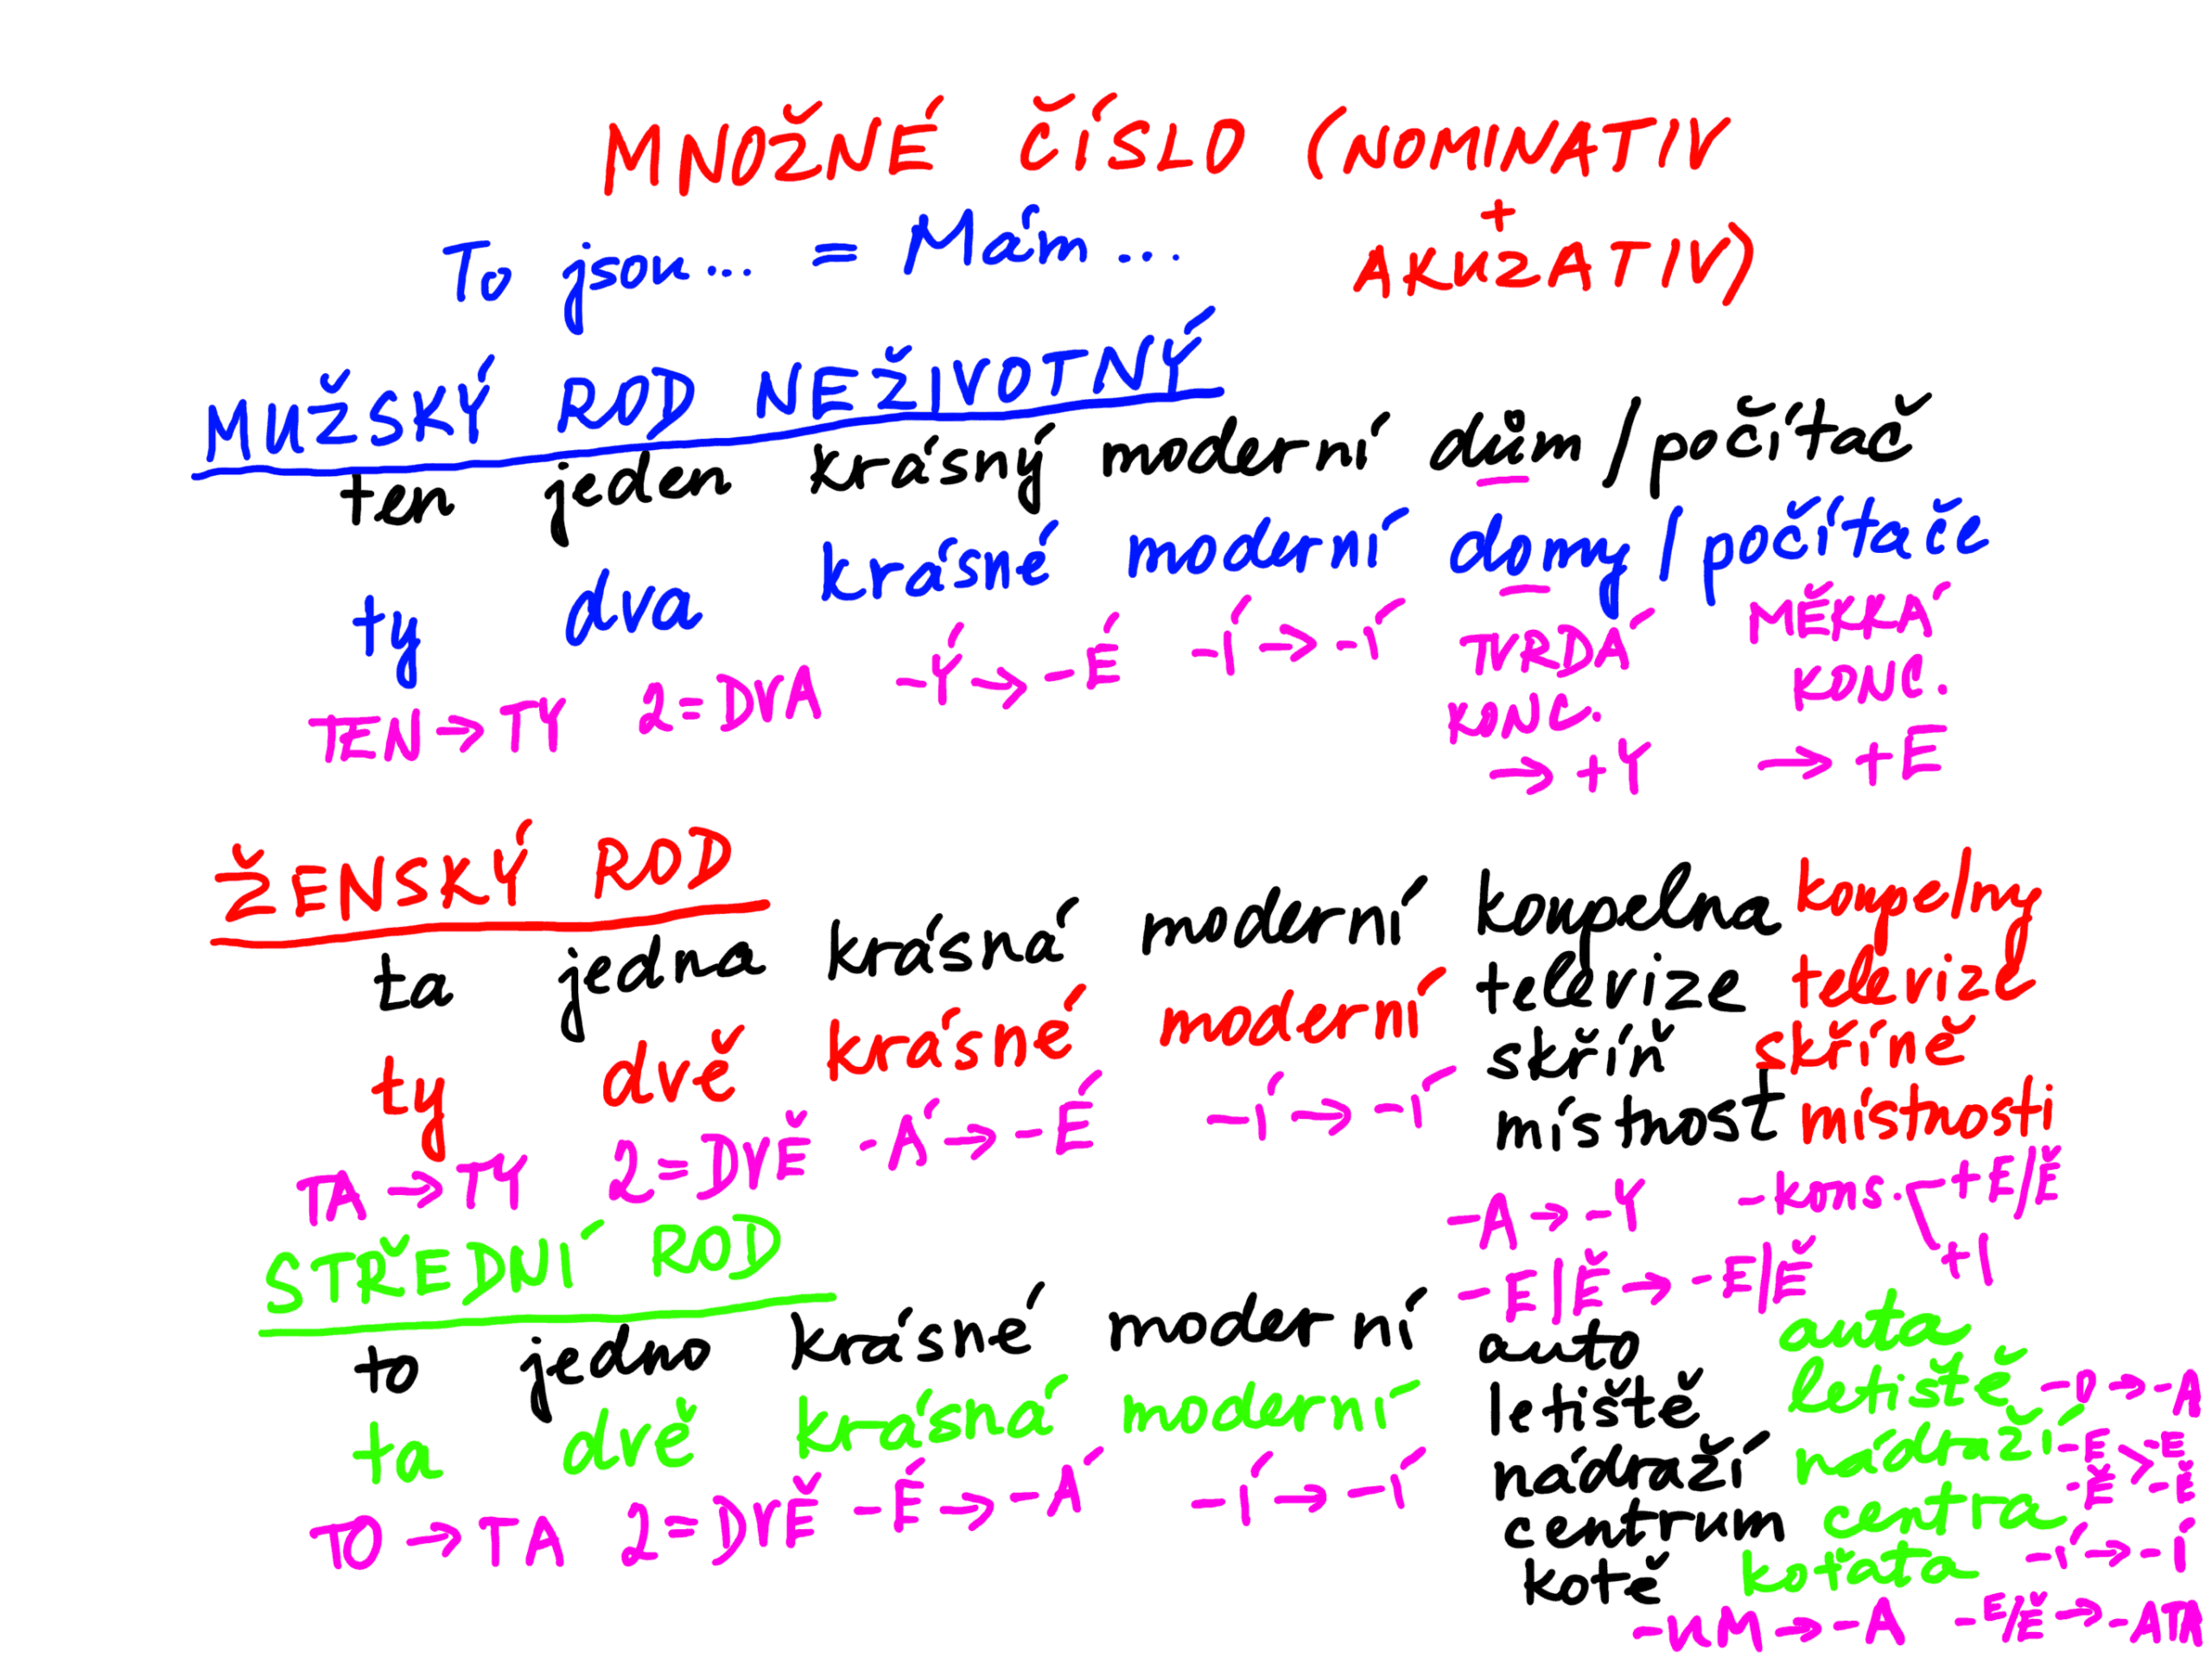 MNOŽNÉ ČÍSLO (NOMINATIV
+
To jsou... = Mám...
AKUZATIV)
MUŽSKÝ ROD NEŽIVOTNÝ
ten jeden krásný moderní dům / počítač
ty dva krásné moderní domy / počítače
TEN → TY 2 = DVA -Ý → -É -Í → -Í
TVRDÁ
KONC.
→ +Y
MĚKKÁ
KONC.
→ +E
ŽENSKÝ ROD
ta jedna krásná moderní koupelna koupelny
televize televize
ty dvě krásné moderní skříň skříně
místnost místnosti
TA → TY 2 = DVĚ -Á → -É -Í → -Í
-A → -Y -kons. +E/Ě
+I
-E/Ě → -E/Ě
STŘEDNÍ ROD
to jedno krásné moderní auto auta
letiště letiště -O → -A
ta dvě krásná moderní nádraží nádraží -E > -E
-Ě -Ě
centrum centra
TO → TA 2 = DVĚ -É → -Á -Í → -Í
kotě koťata -Í → -Í
-UM → -A -E/Ě → -ATA